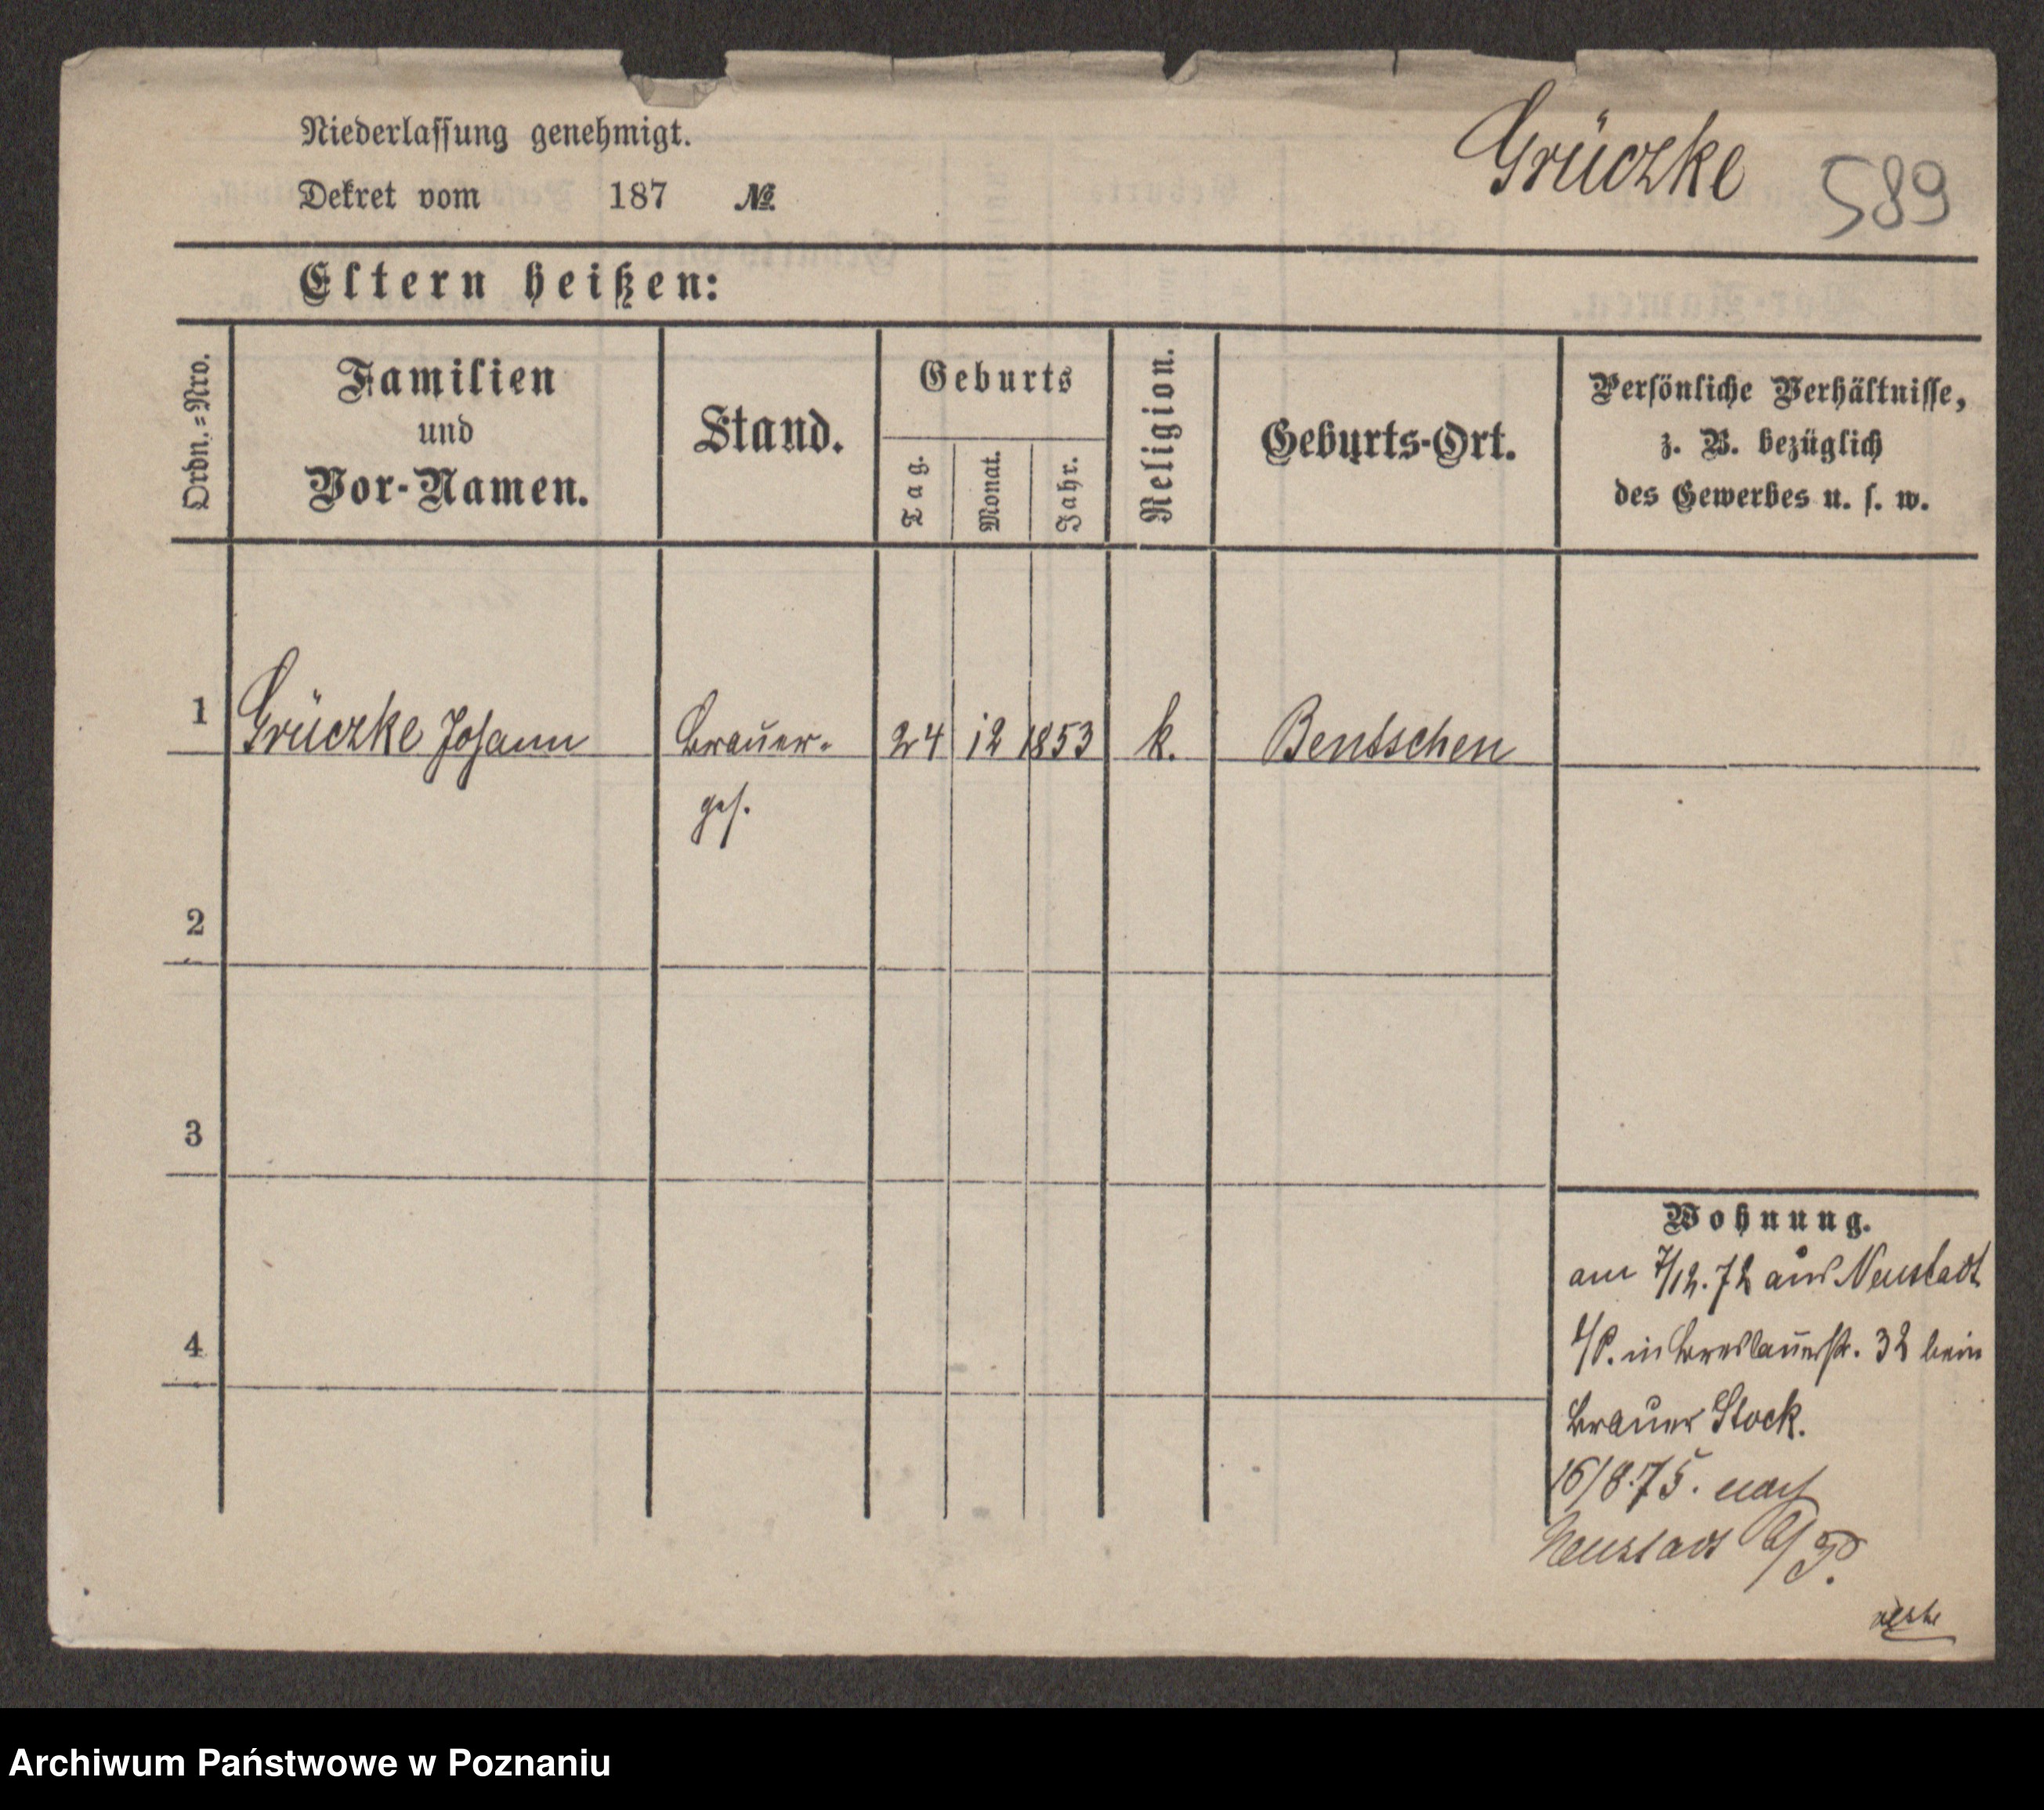 Niederlassung genehmigt.
Dekret vom 187 №
Grüczke 589
Eltern heißen:
Ordn.=Nro.
Familien
und
Vor-Namen.
Stand.
Geburts
Tag.
Monat.
Jahr.
Religion.
Geburts-Ort.
Persönliche Verhältnisse,
z. B. bezüglich
des Gewerbes u. s. w.
1 Grüczke Johann Brauer- 24 12 1853 k. Bentschen
ges.
2
3
4
Wohnung.
am 7/12.72 aus Neustadt
b/P. in Breslauerstr. 32 beim
Brauer Stock.
16/8.75. nach
Neustadt b/P.
Archiwum Państwowe w Poznaniu